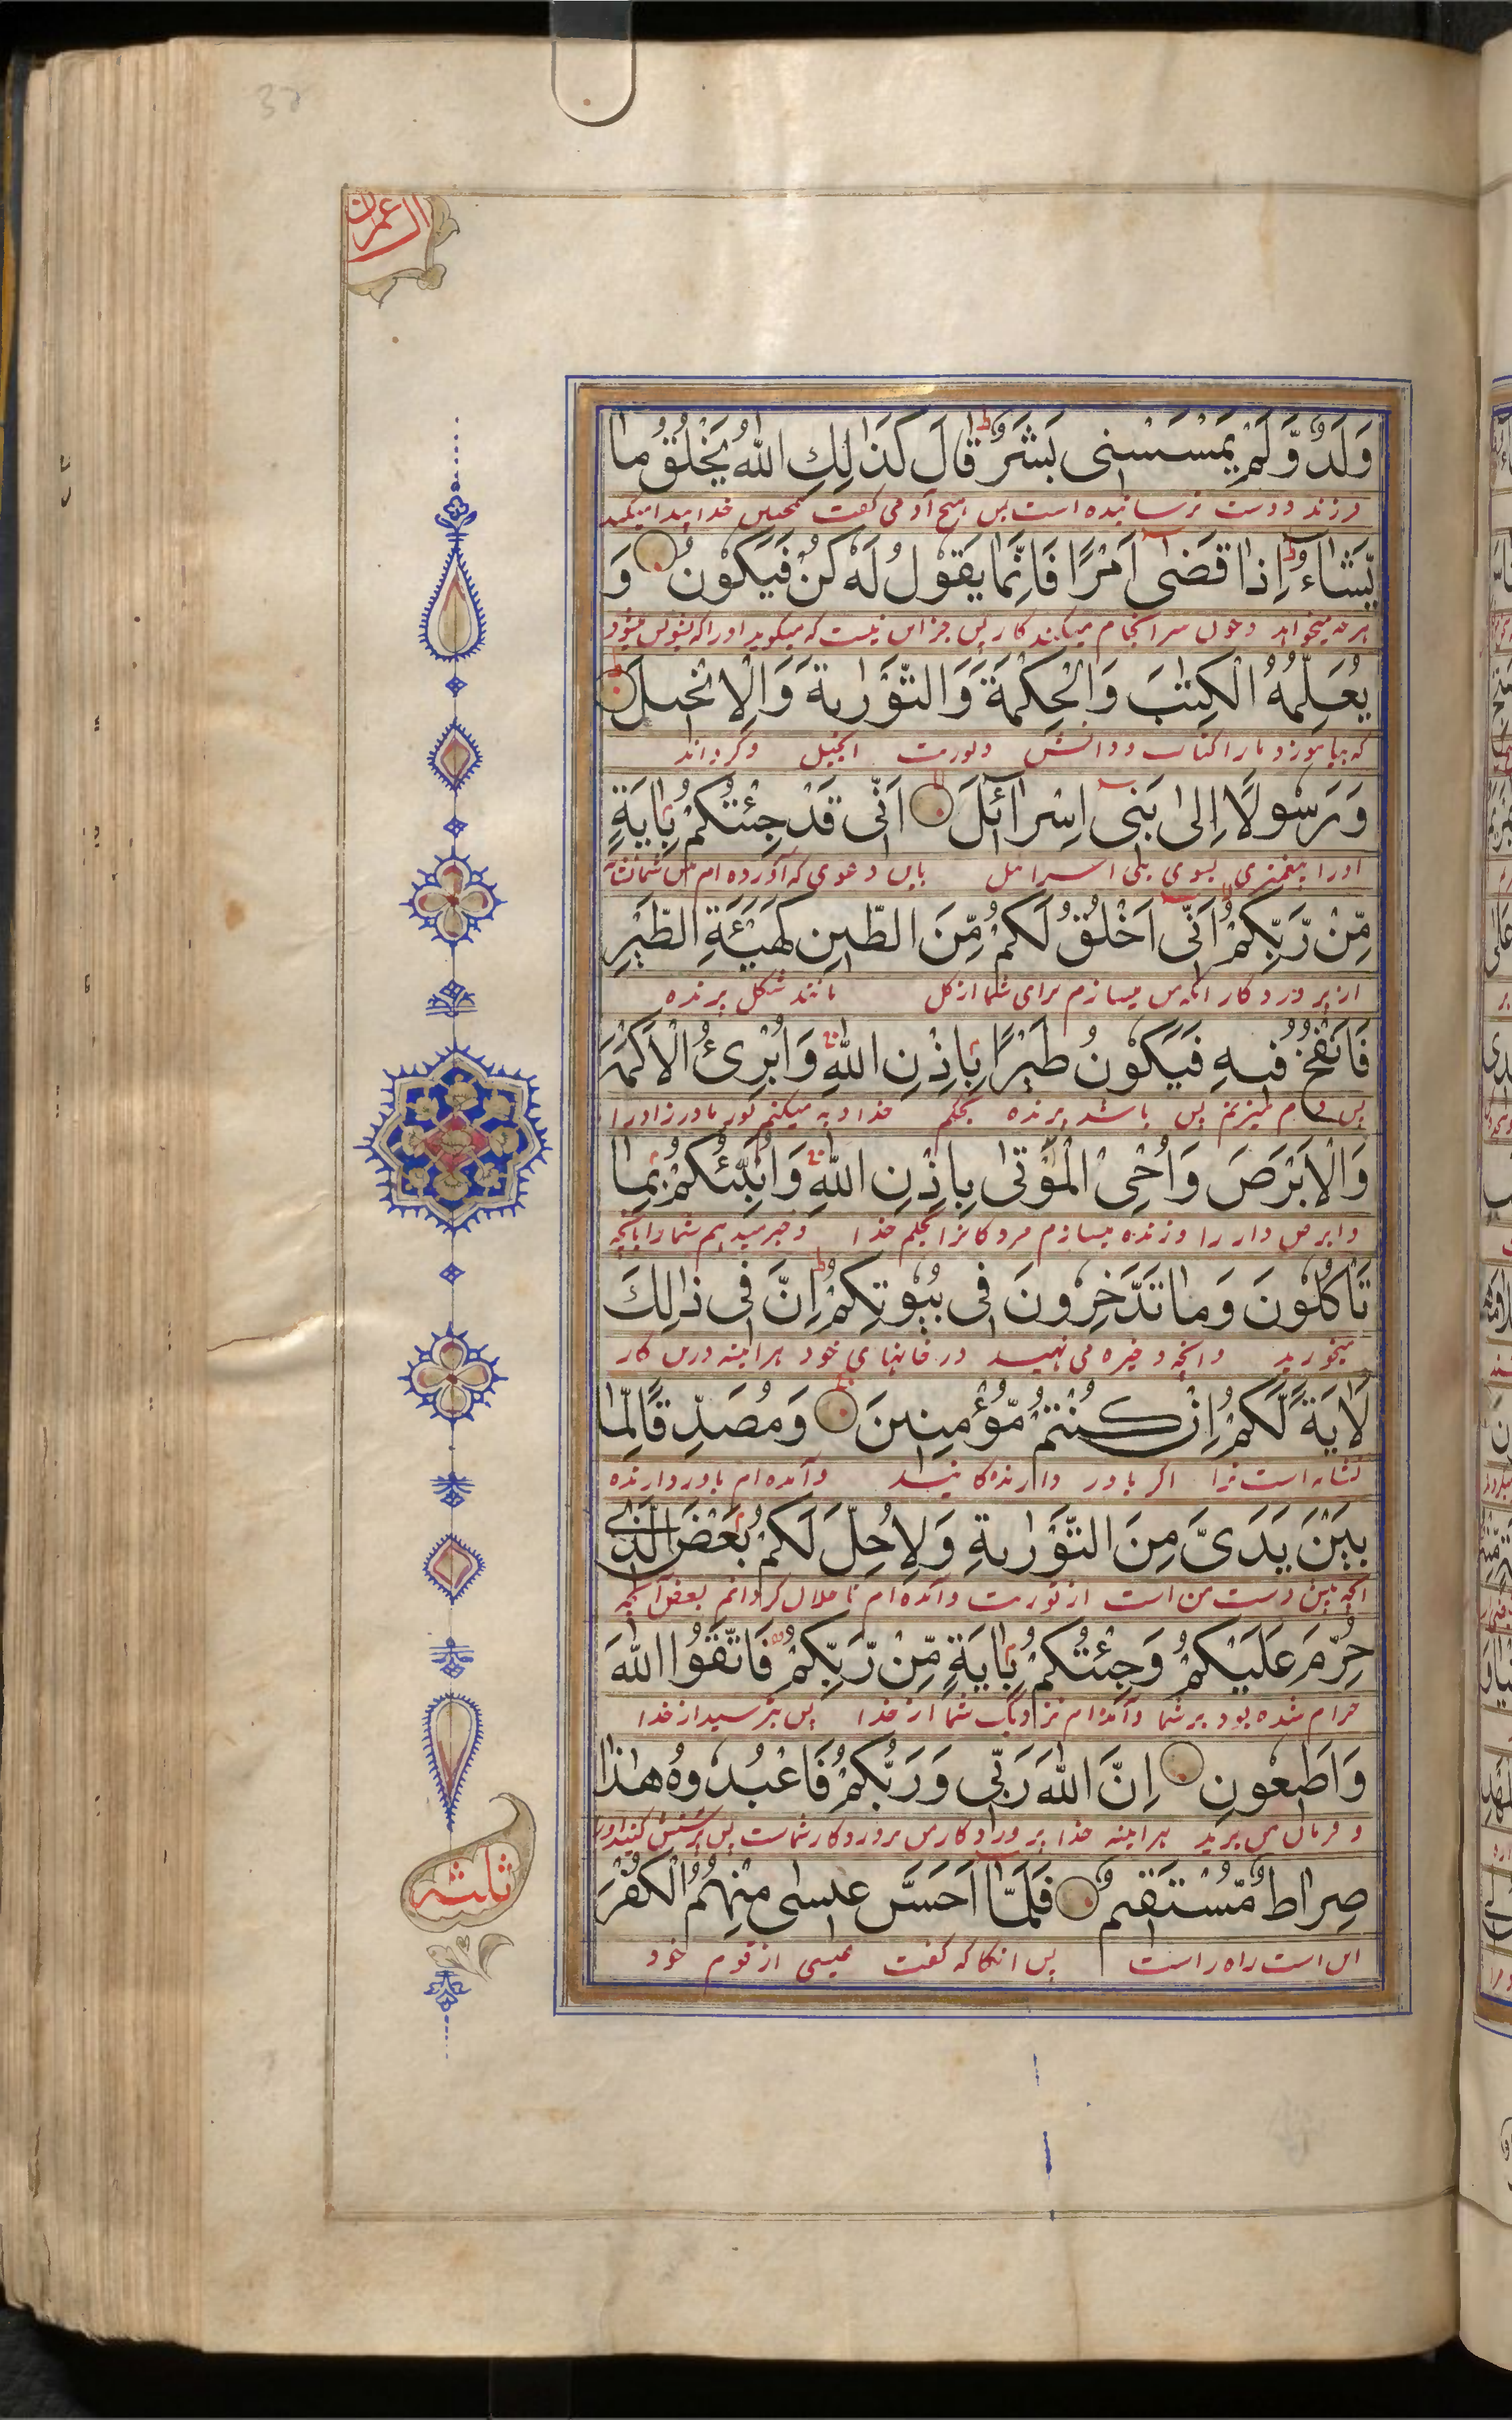 38
ال عمران
وَلَدٌ وَّلَمْ يَمْسَسْنِى بَشَرٌ ط قَالَ كَذَٰلِكِ اللّٰهُ يَخْلُقُ مَا
فرزند و دست نرسانیده است بس هیچ آدمی گفت همچنین خدا پیدا میکند
يَشَآءُ ط اِذَا قَضٰى اَمْرًا فَاِنَّمَا يَقُوْلُ لَهٗ كُنْ فَيَكُوْنُ وَ
هرچه میخواهد و چون سرانجام میکند کار پس جز این نیست که میگوید اورا که بشو پس میشود
يُعَلِّمُهُ الْكِتٰبَ وَالْحِكْمَةَ وَالتَّوْرٰىةَ وَالْاِنْجِيْلَ
که بیاموزد مارا کتاب و دانش و توریت انجیل و گرداند
وَرَسُوْلًا اِلٰى بَنِىْٓ اِسْرَآئِلَ اَنِّى قَدْ جِئْتُكُمْ بِاٰيَةٍ
اورا پیغمبری بسوی بنی اسرائیل باین دعوی که آورده ام
مِّنْ رَّبِّكُمْ اَنِّىْٓ اَخْلُقُ لَكُمْ مِّنَ الطِّيْنِ كَهَيْئَةِ الطَّيْرِ
از پروردگار انکه من میسازم برای شما از کل مانند شکل پرنده
فَاَنْفُخُ فِيْهِ فَيَكُوْنُ طَيْرًا بِاِذْنِ اللّٰهِ وَاُبْرِئُ الْاَكْمَهَ
پس دم میزنم پس باشد پرنده بحکم خدا و به میکنم کور مادرزاد را
وَالْاَبْرَصَ وَاُحْىِ الْمَوْتٰى بِاِذْنِ اللّٰهِ وَاُنَبِّئُكُمْ بِمَا
و ابرص دار را و زنده میسازم مردکانرا بحکم خدا و خبر میدهم شما را بانچه
تَاْكُلُوْنَ وَمَا تَدَّخِرُوْنَ فِى بُيُوْتِكُمْ ط اِنَّ فِى ذٰلِكَ
میخورید و انچه ذخیره می نهید در خانهای خود هراینه درین کار
لَاٰيَةً لَّكُمْ اِنْ كُنْتُمْ مُّؤْمِنِيْنَ وَمُصَدِّقًا لِّمَا
نشانه است اکر باور دارنده کانید و آمده ام باور دارنده
بَيْنَ يَدَىَّ مِنَ التَّوْرٰىةِ وَلِاُحِلَّ لَكُمْ بَعْضَ الَّذِىْ
انچه پیش دست من است از توریت و آمده ام تا حلال کردانم بعض آنچه
حُرِّمَ عَلَيْكُمْ وَجِئْتُكُمْ بِاٰيَةٍ مِّنْ رَّبِّكُمْ فَاتَّقُوا اللّٰهَ
حرام شده بود بر شما و آمده ام نزدیک شما از خدا پس بترسید از خدا
وَاَطِيْعُوْنِ اِنَّ اللّٰهَ رَبِّى وَرَبُّكُمْ فَاعْبُدُوْهُ هٰذَا
و فرمان من برید هراینه خدا پروردکار من و پروردکار شماست پس پرستش کنید اورا
صِرَاطٌ مُّسْتَقِيْمٌ فَلَمَّآ اَحَسَّ عِيْسٰى مِنْهُمُ الْكُفْرَ
این است راه راست پس انکاه که کفت عیسی از قوم خود
ثلثه